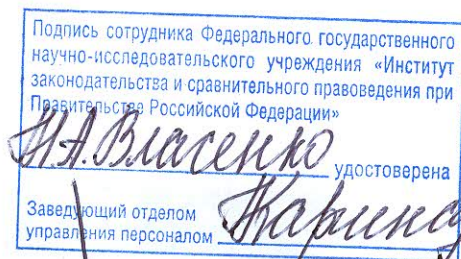 Подпись сотрудника Федерального государственного
научно-исследовательского учреждения «Институт
законодательства и сравнительного правоведения при
Правительстве Российской Федерации»
Н.А. Власенко удостоверена
Заведующий отделом
управления персоналом